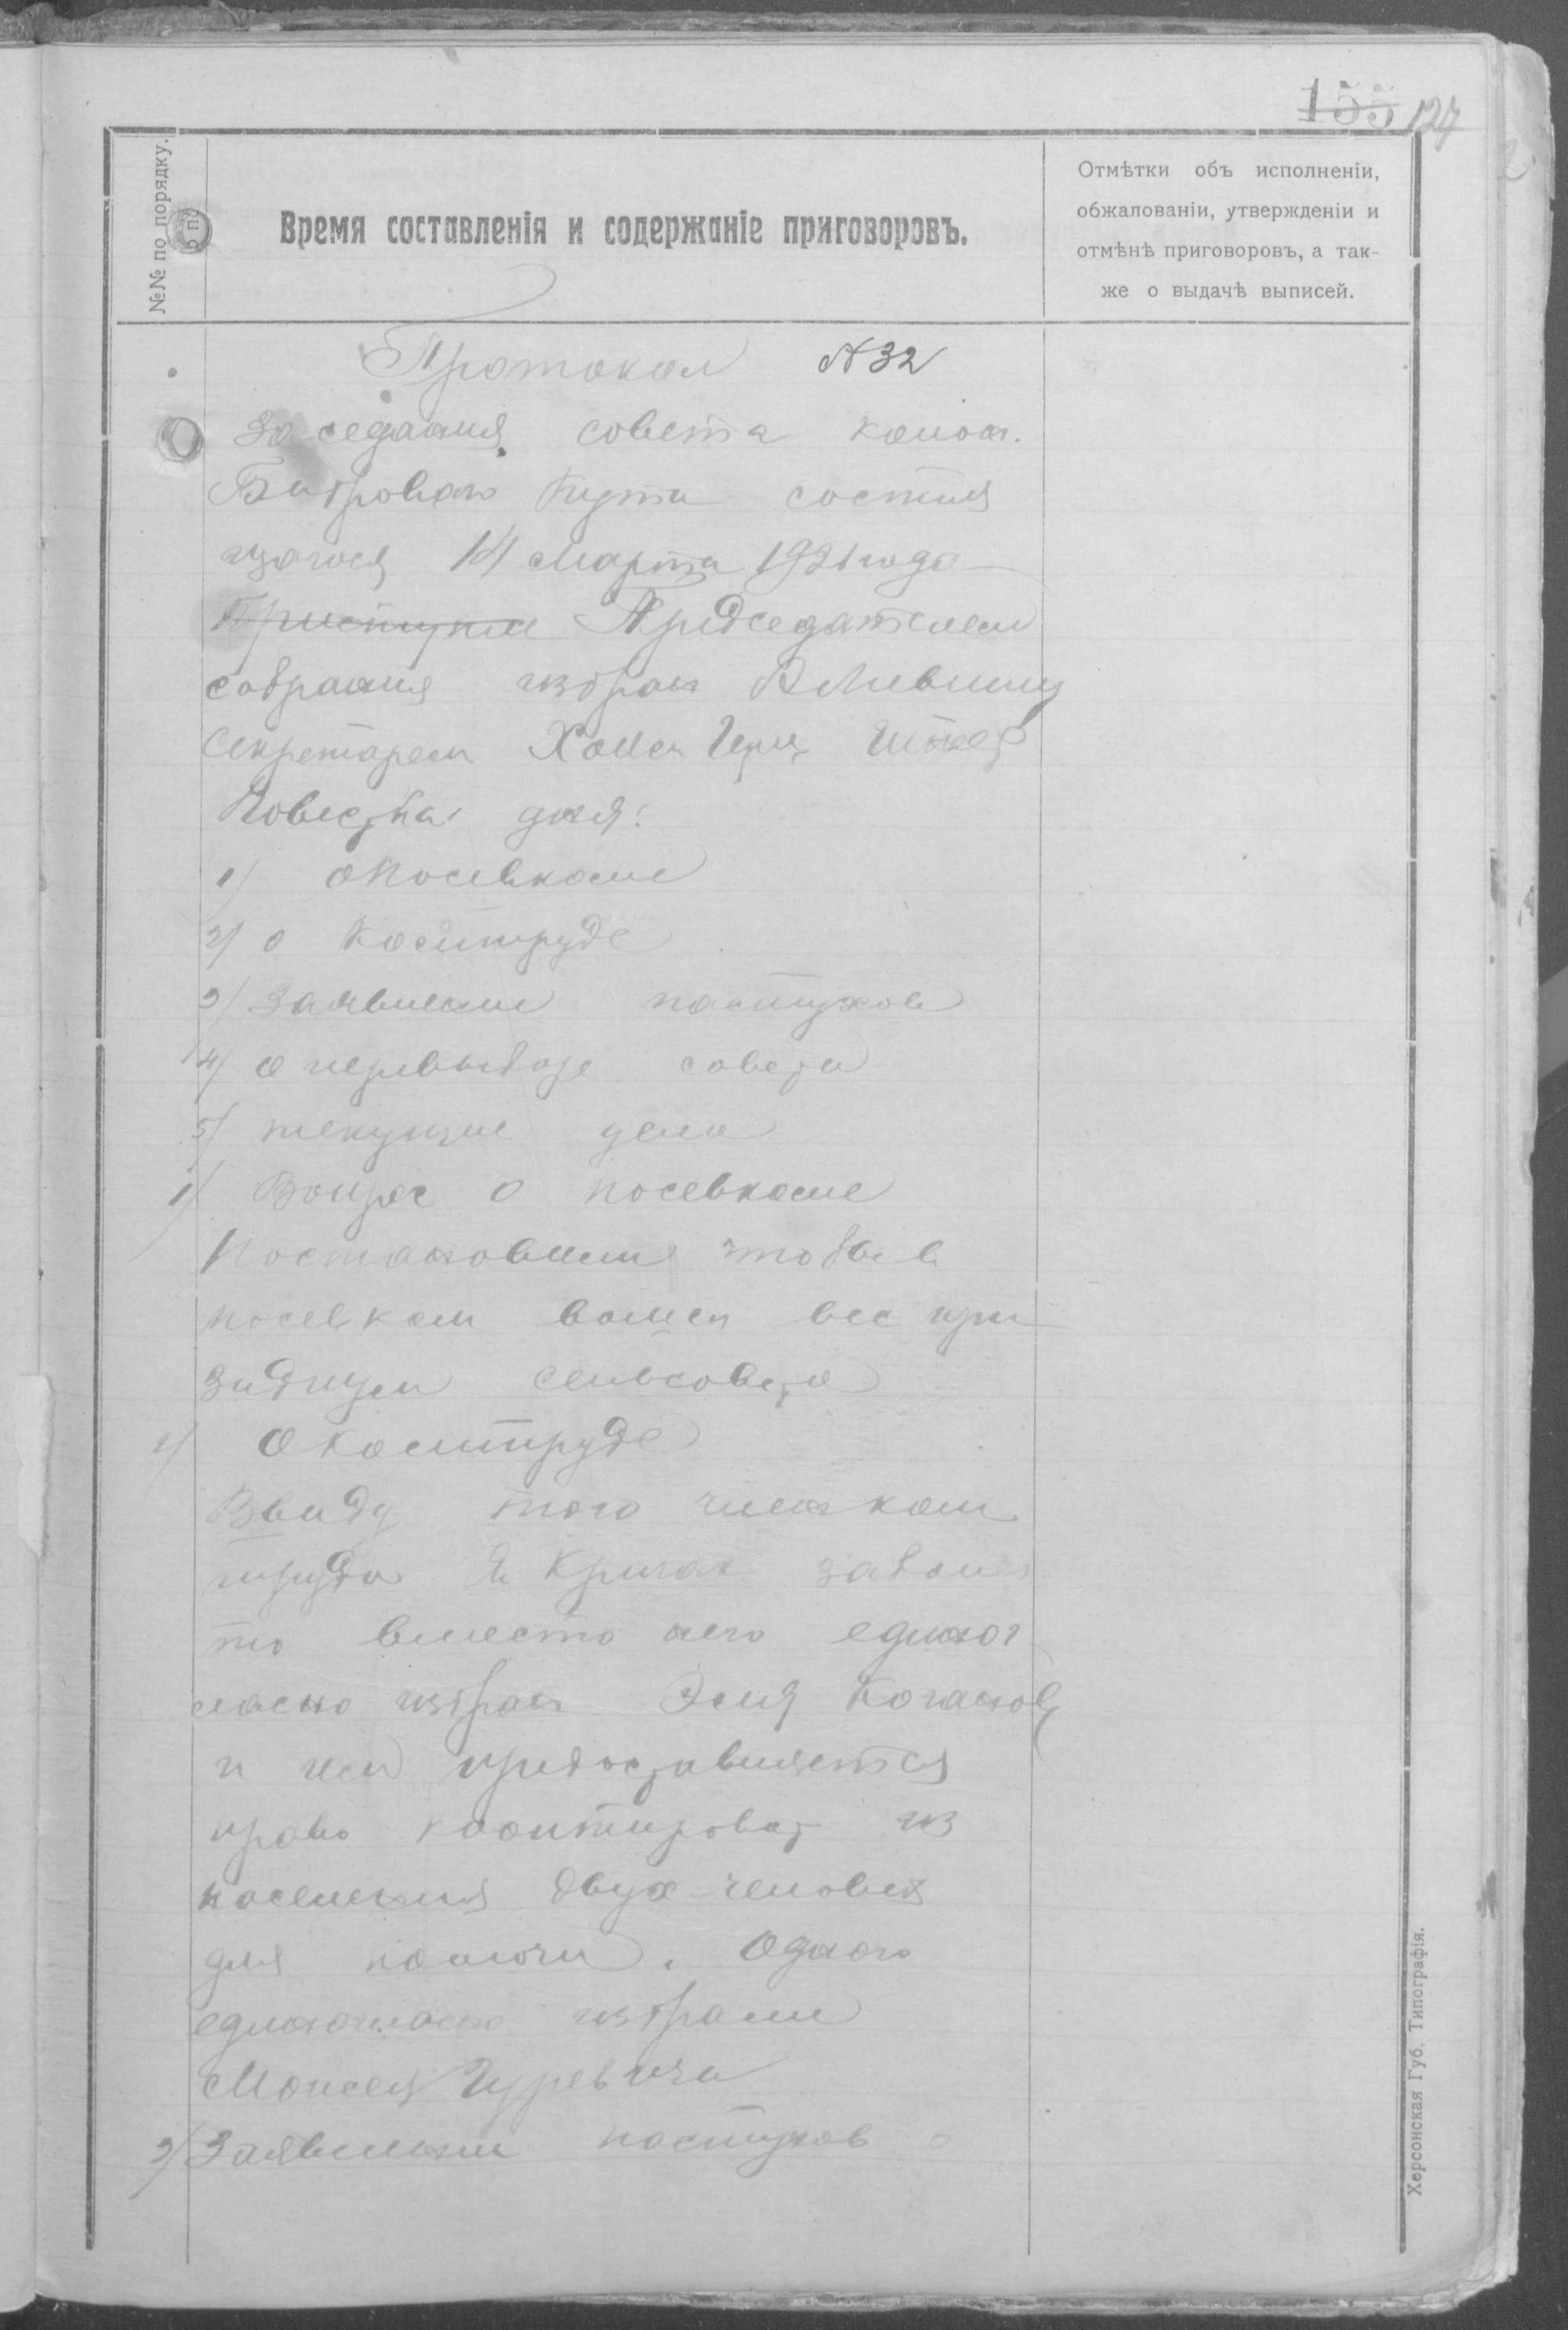 155 127
№№ по порядку.
Время составленія и содержаніе приговоровъ.
Отмѣтки объ исполненіи,
обжалованіи, утвержденіи и
отмѣнѣ приговоровъ, а так-
же о выдачѣ выписей.
Протокол N 32
Заседания совета колон.
Бобровый Кут состояв
щагося 14 Марта 1921 года
Председателем
собрания избран
Секретарем
Повестка дня:
1) О Посевкоме
2) о Комтруде
3) Заявление пастухов
4) о перевыборе совета
5) текущие дела
1) Вопрос о посевкоме
Постановили чтобы в
посевком вошел вес при
зидиум сельсовета
2) О комтруде
Ввиду того член ком
труда заболел
то вместо него единог
ласно избран Коганов
и ему предоставляется
право кооптироват из
населения двух человек
для помочи. Одного
единогласно избрали
Моисея Гуревича
3) Заявление пастухов
Херсонская Губ. Типографія.